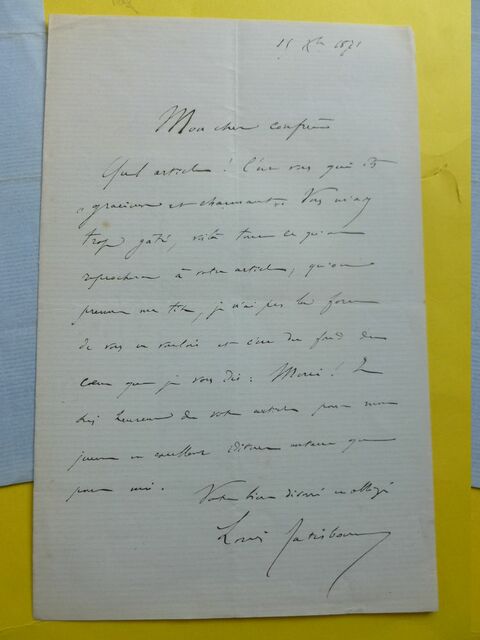 15 Xbre 1871
Mon cher confrère
Quel article ! C'est vous qui êtes
gracieux et charmant. Vous m'avez
trop gâté, voilà tout ce qu'on
reprochera à votre article, qu'on
prenne ma tête, je n'ai pas la force
de vous en vouloir et c'est du fond du
cœur que je vous dis : Merci ! Je
suis heureux de votre article pour mon
jeune et excellent éditeur autant que
pour moi.
Votre bien dévoué et obligé
Louis